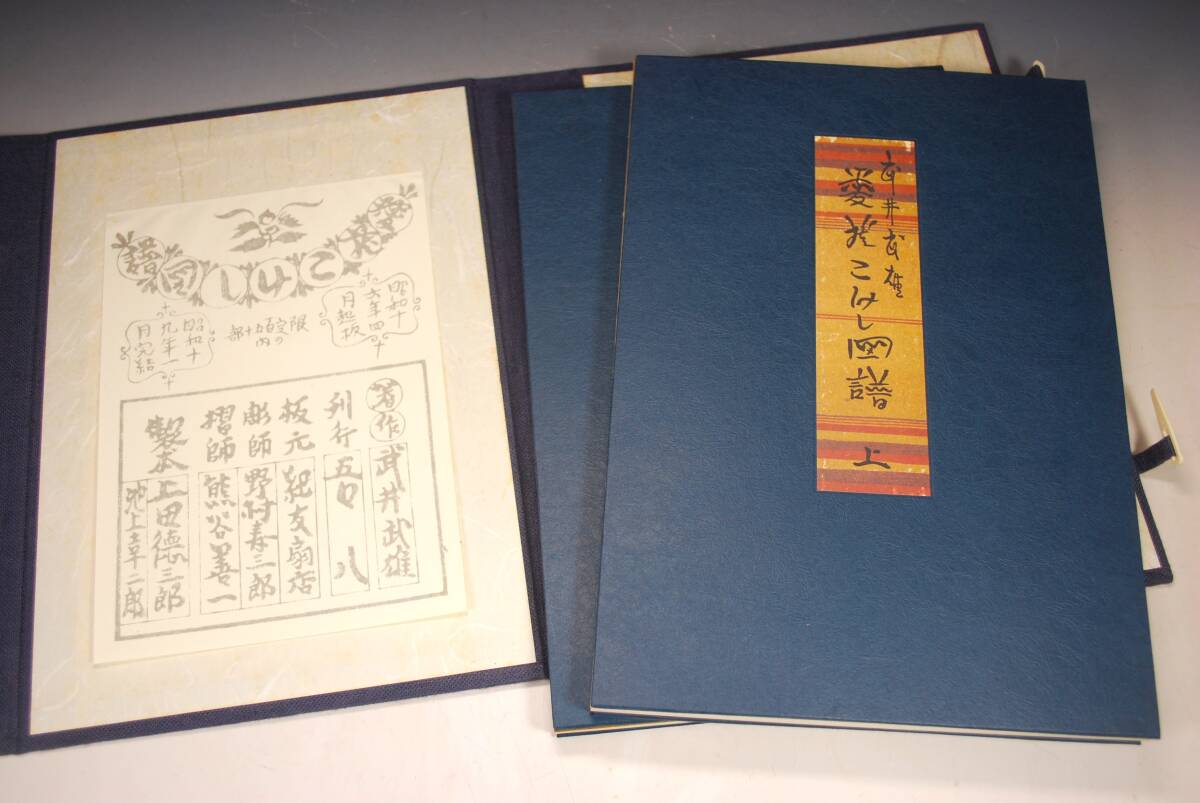 愛蔵こけし図譜
昭和十
六年四
月起板
限
定の
百五内
十
部
昭和十
九年一
月完結
著作 武井武雄
刊行 吾八
板元 紀友扇店
彫師 野村寿三郎
摺師 熊谷善一
製本 上田徳三郎
池上幸二郎
武井武雄
愛蔵こけし図譜
上